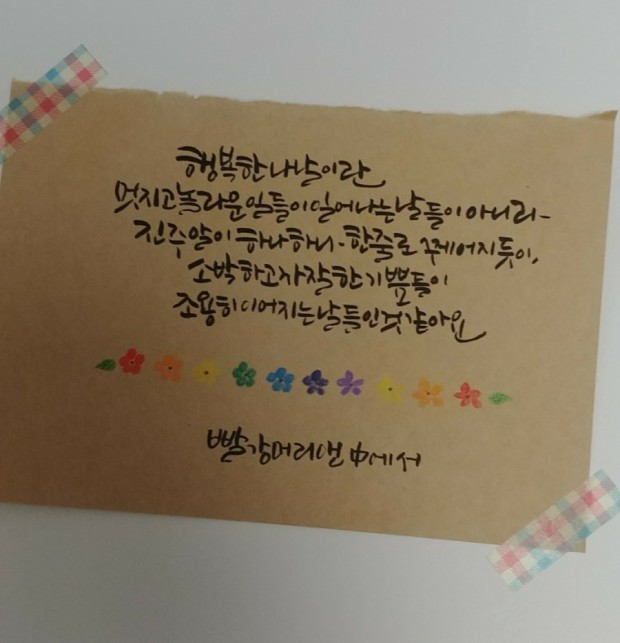 행복한 나날이란
멋지고 놀라운 일들이 일어나는 날들이 아니라
진주알이 하나하나 한줄로 꿰어지듯이,
소박하고 자잘한 기쁨들이
조용히 이어지는 날들인 것 같아요
빨강머리앤 中에서